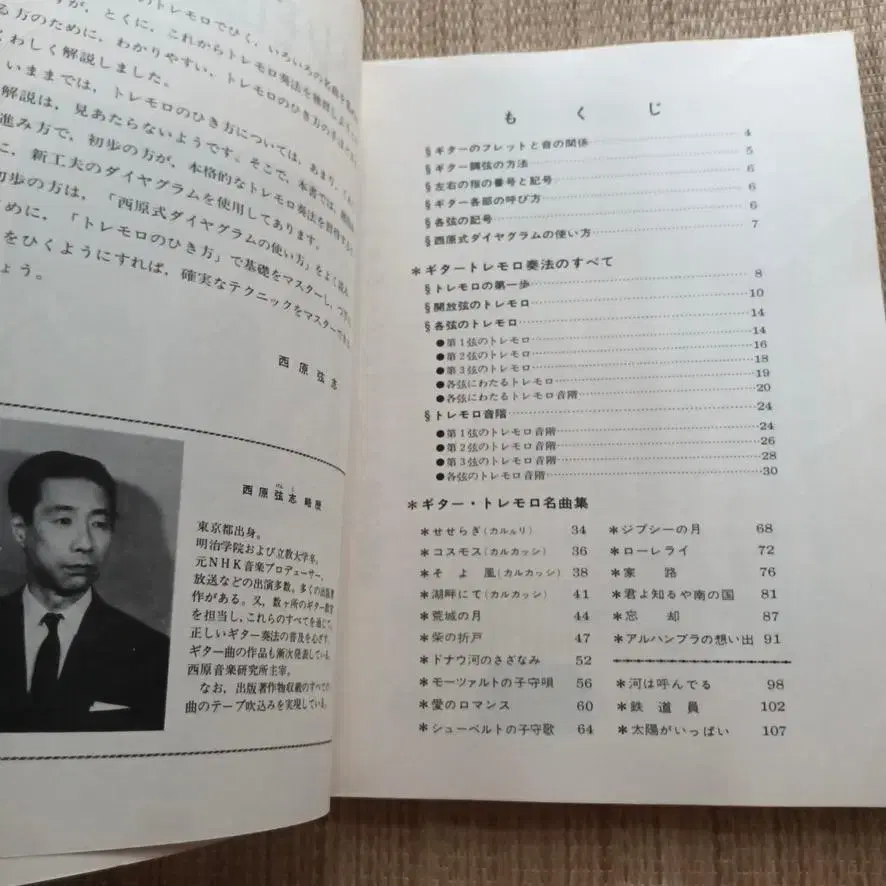 のトレモロでひく，いろいろの名曲を
すが，とくに，これからトレモロ奏法を
る方のために，わかりやすい，トレモロのひき方の
くわしく解説しました。
いままでは，トレモロのひき方については，あまり，
解説は，見あたらないようです。そこで，本書では，
進み方で，初歩の方が，本格的なトレモロ奏法を習得する
に，新工夫のダイヤグラムを使用してあります。
初歩の方は，「西原式ダイヤグラムの使い方」をよく読
めに，「トレモロのひき方」で基礎をマスターし，
をひくようにすれば，確実なテクニックをマスターでき
ょう。
西原弦志
西原弦志 略歴
東京都出身。
明治学院および立教大学卒。
元NHK音楽プロデューサー，
放送などの出演多数。多くの出版著
作がある。又，数ヶ所のギター教室
を担当し，これらのすべてを通じて，
正しいギター奏法の普及を心ざす。
ギター曲の作品も漸次発表している。
西原音楽研究所主宰。
なお，出版著作物収載のすべての
曲のテープ吹込みを実現している。
もくじ
§ギターのフレットと音の関係 4
§ギター調弦の方法 5
§左右の指の番号と記号 6
§ギター各部の呼び方 6
§各弦の記号 6
§西原式ダイヤグラムの使い方 7
＊ギタートレモロ奏法のすべて
§トレモロの第一歩 8
§開放弦のトレモロ 10
§各弦のトレモロ 14
●第1弦のトレモロ 14
●第2弦のトレモロ 16
●第3弦のトレモロ 18
●各弦にわたるトレモロ 19
●各弦にわたるトレモロ音階 20
§トレモロ音階 24
●第1弦のトレモロ音階 24
●第2弦のトレモロ音階 26
●第3弦のトレモロ音階 28
●各弦のトレモロ音階 30
＊ギター・トレモロ名曲集
＊せせらぎ(カルルリ) 34
＊コスモス(カルカッシ) 36
＊そよ風(カルカッシ) 38
＊湖畔にて(カルカッシ) 41
＊荒城の月 44
＊柴の折戸 47
＊ドナウ河のさざなみ 52
＊モーツァルトの子守唄 56
＊愛のロマンス 60
＊シューベルトの子守歌 64
＊ジプシーの月 68
＊ローレライ 72
＊家路 76
＊君よ知るや南の国 81
＊忘却 87
＊アルハンブラの想い出 91
＊河は呼んでる 98
＊鉄道員 102
＊太陽がいっぱい 107